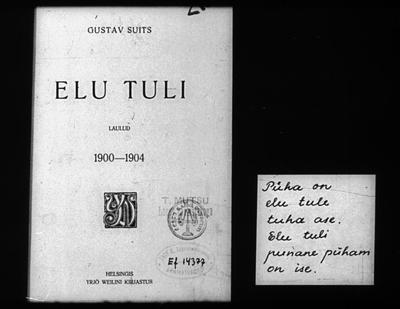 GUSTAV SUITS
ELU TULI
LAULUD
1900—1904
T. MUTSU
Ef 14377
HELSINGIS
YRJÖ WEILINI KIRJASTUS
Püha on
elu tule
tuha ase.
Elu tuli
punane püham
on ise.